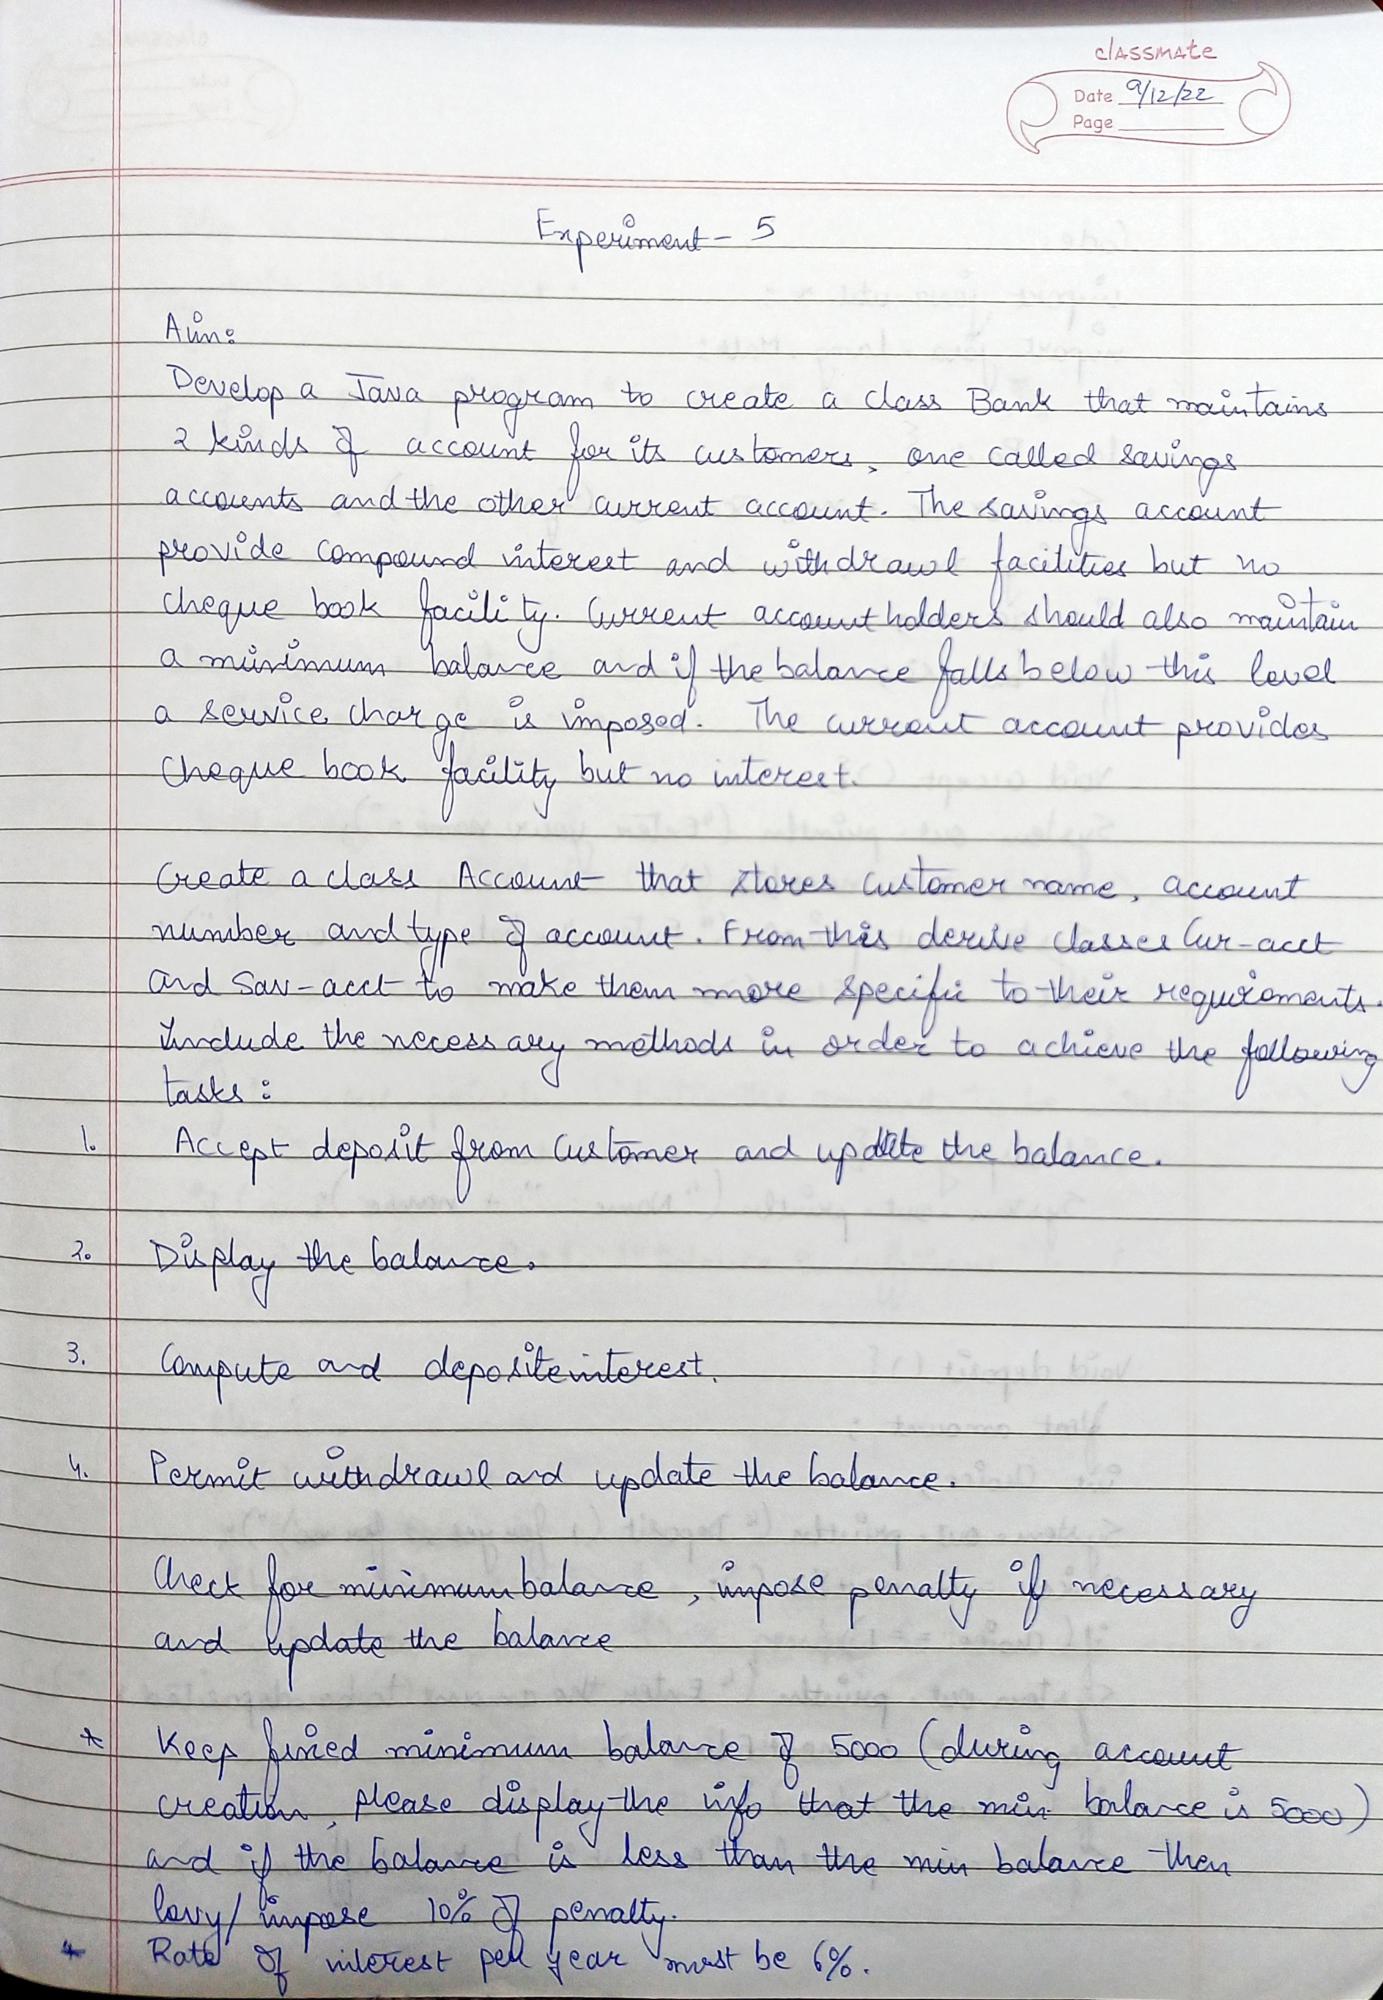 classmate
Date 9/12/22
Page
Experiment - 5
Aim:
Develop a Java program to create a class Bank that maintains
2 kinds of account for its customers, one called savings
accounts and the other current account. The savings account
provide compound interest and withdrawl facilities but no
cheque book facility. Current account holders should also maintain
a minimum balance and if the balance falls below this level
a service charge is imposed. The current account provides
cheque book facility but no interest.
Create a class Account that stores customer name, account
number and type of account. From this derive classes Cur-acct
and Sav-acct to make them more specific to their requirements.
Include the necessary methods in order to achieve the following
tasks:
1. Accept deposit from customer and update the balance.
2. Display the balance.
3. Compute and deposite interest.
4. Permit withdrawl and update the balance.
Check for minimum balance, impose penalty if necessary
and update the balance
* Keep fixed minimum balance of 5000 (during account
creation, please display the info that the min balance is 5000)
and if the balance is less than the min balance then
levy/impose 10% of penalty.
* Rate of interest per year must be 6%.